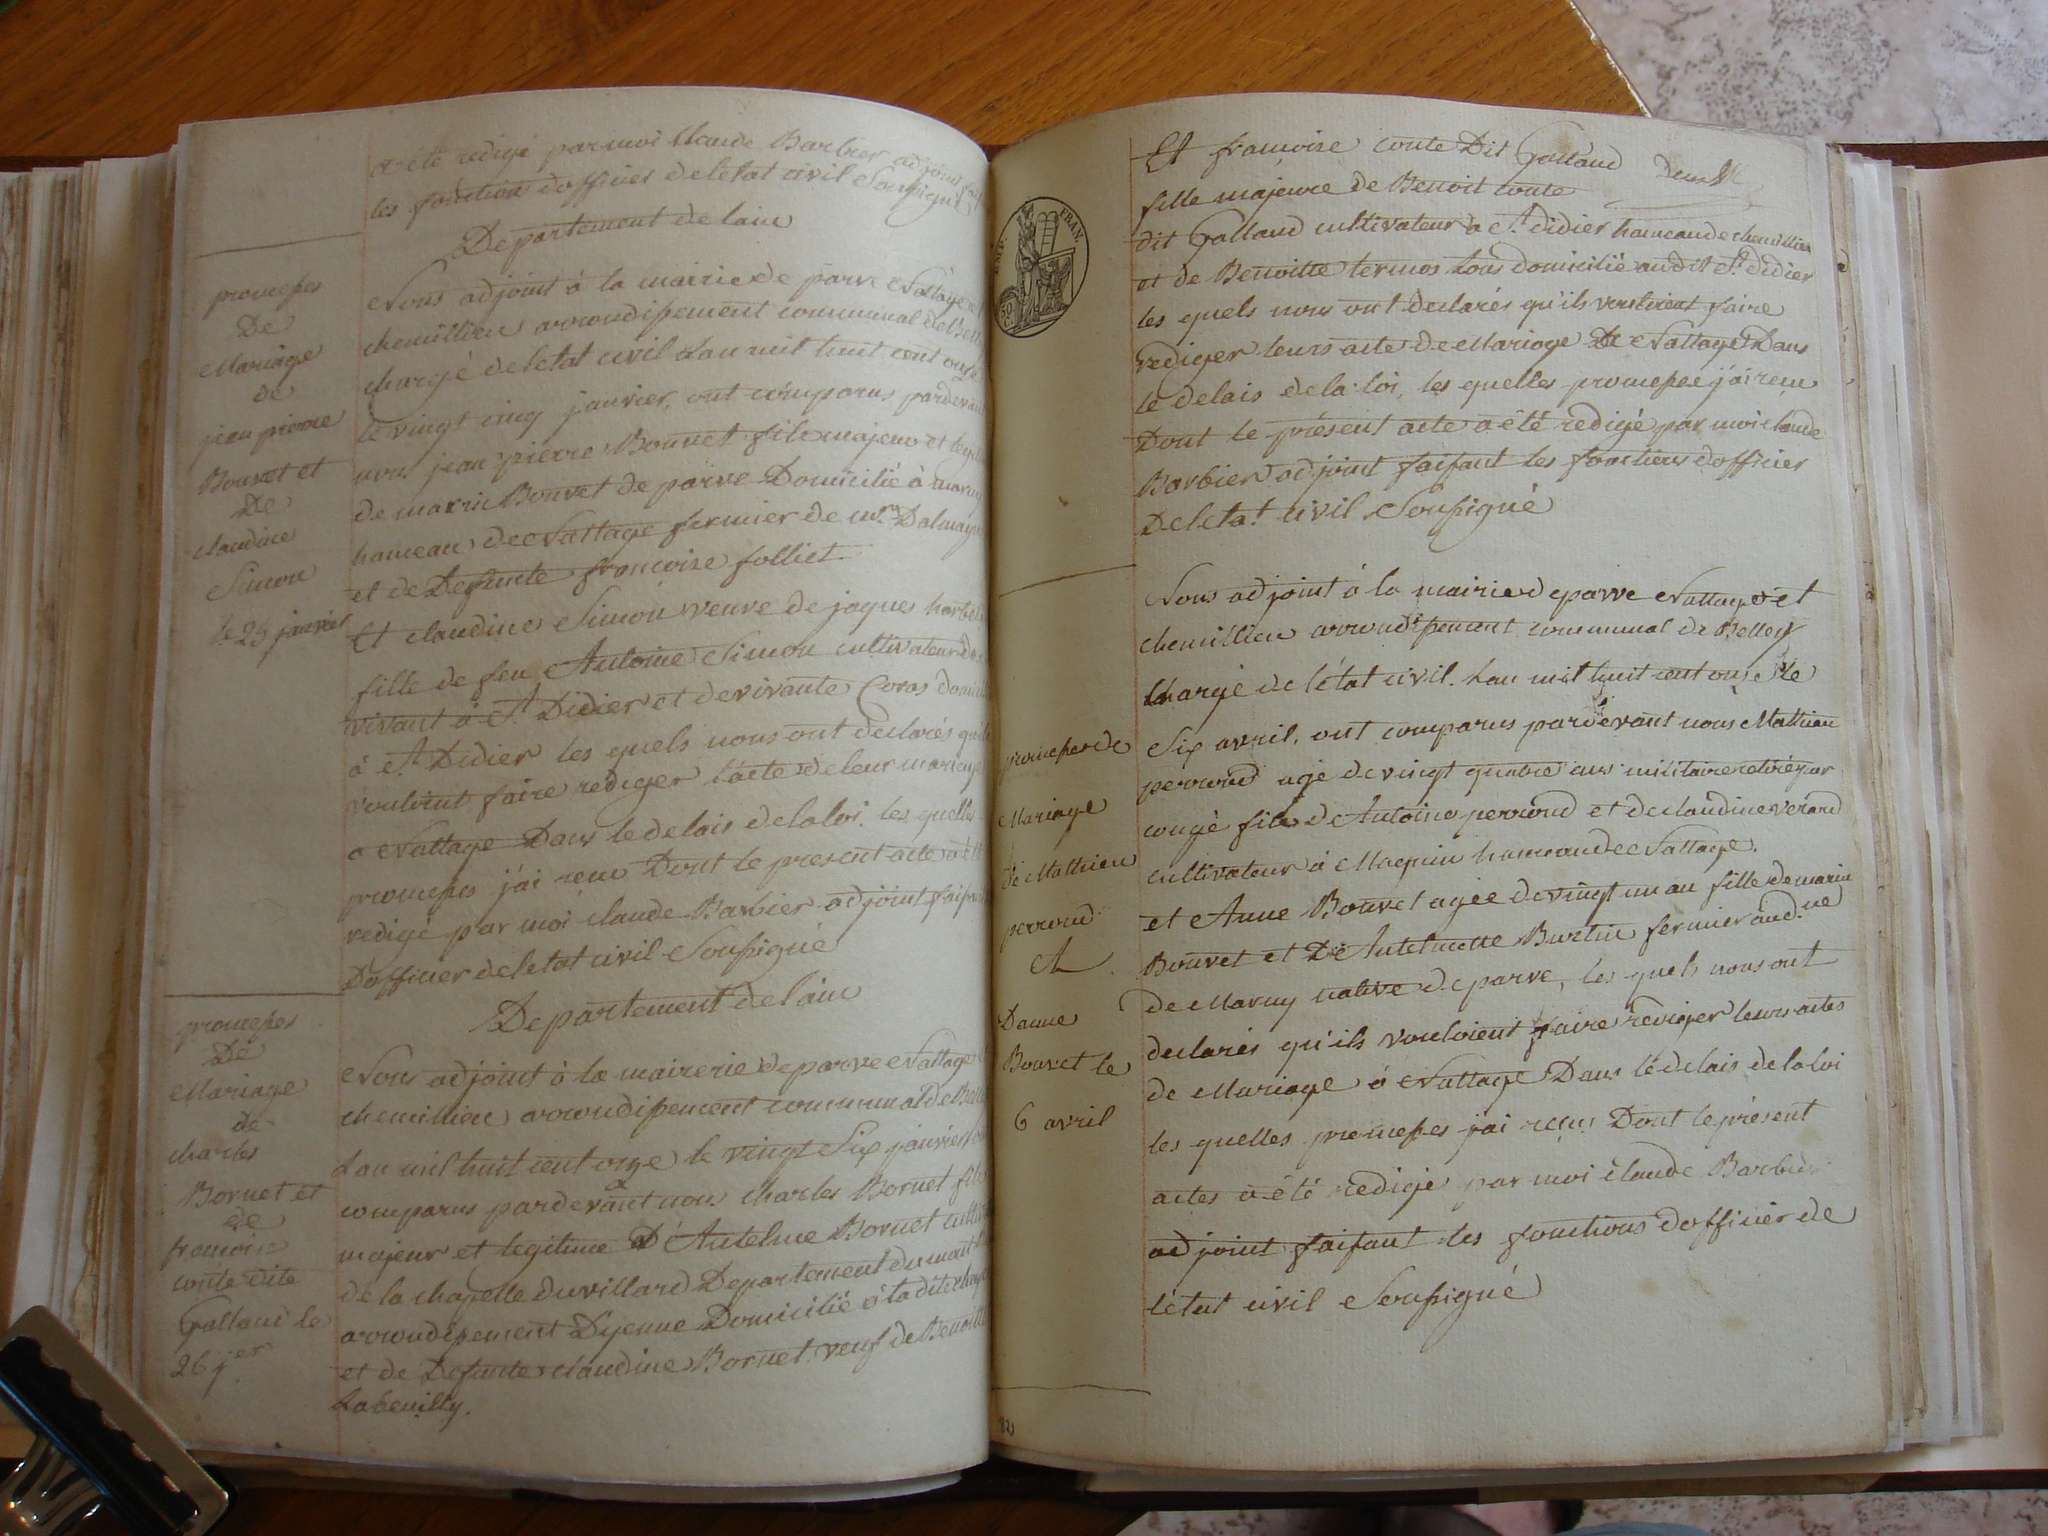 a été redigé par moi Claude Barbier adjoint
les fonction dofficier deletat civil Soussigné
Departement delain
promesses
De
Mariage
de
jean pierre
Bouvet et
De
claudine
Simon
le 25 janvier
Nous adjoint à la mairie de parve Nattage et
chemillieu arrondissement communal de
chargé deletat civil Lan mil huit cent onze
le vingt cinq janvier, ont comparus pardevant
nous jean pierre Bouvet fils majeur et
de marin Bouvet de parve Domicilié à
hameau de Nattage fermier de mr.
et de Defunte françoise folliet
Et claudine Simon veuve de jaques
fille de feu Antoine Simon cultivateur
vivant à St Didier et devivante Coras
à St Didier les quels nous ont declarés
vouloint faire rediger lacte deleur mariage
a Nattage Dans ledelais delaloi, les quelles
promesses j'ai recu Dont le present acte a été
redigé par moi claude Barbier adjoint
Dofficier deletat civil Soussigné
Departement delain
promesses
De
Mariage
de
charles
Bornet et
de
francoise
conte dite
Galland le
26 jer
Nous adjoint à la mairerie deparve Nattage
chemillieu arrondissement communal de
Lan mil huit cent onze le vingt Six janvier
comparus pardevant nous charles Bornet fils
majeur et legitime D'Antelme Bornet
de la chapelle du villard Departement du
arrondissement Dyenne Domicilié à ladite
et de Defunte claudine Bornet veuf de
Labeuilly.
Et francoise conte Dit Galland
fille majeure de Benoit conte
dit Galland cultivateur a St didier hameau de chemillieu
et de Benoitte termos tous domicilié audit St didier
les quels nous ont declarés qu'ils vouloient faire
rediger leurs acte de Mariage De Nattage Dans
le delais de la loi, les quelles promesse j'ai recu
Dont le présent acte a été redigé par moi claude
Barbier adjoint faisant les fonctions dofficier
Deletat civil Soussigné
promesses de
Mariage
de Mathieu
perroud
Et
Danne
Bouvet le
6 avril
Nous adjoint à la mairie deparve Nattage et
chemillieu arrondissement communal de Belley
Chargé de létat civil. Lan mil huit cent onze le
Six avril, ont comparus pardevant nous Mathieu
perroud agé de vingt quatre ans militaire retiré par
congé fils d'Antoine perroud et declaudine verand
cultivateur à Magnin hameau de Nattage.
et Anne Bouvet agée devingt un an fille demarin
Bouvet et D'Antelmette Burtin fermier aud. ne
de Marny native deparve, les quels nous ont
declarés qu'ils vouloient faire rediger leurs actes
de Mariage à Nattage Dans le delais de la loi
les quelles promesses j'ai reçu Dont le présent
actes a été redigé par moi claude Barbier
adjoint faisant les fonctions dofficier de
létat civil Soussigné